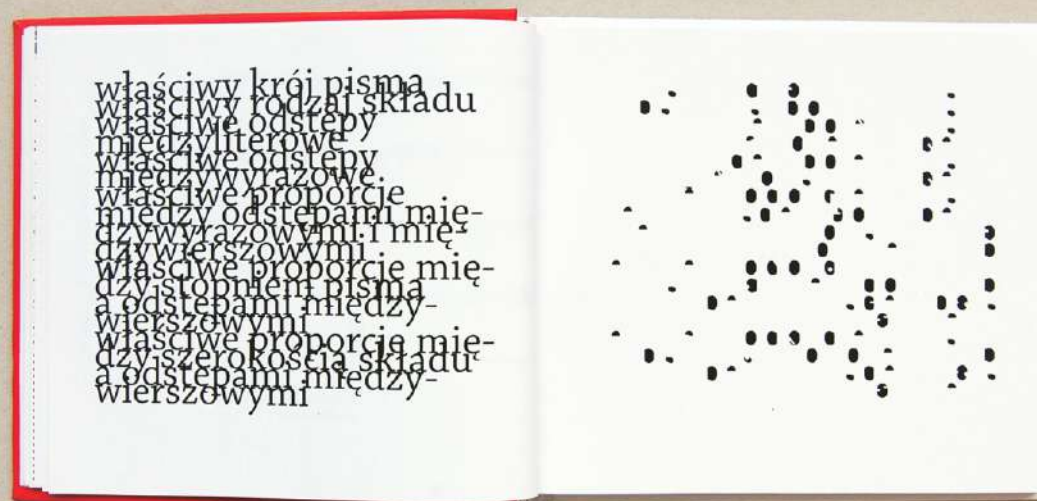 właściwy krój pisma
właściwy rodzaj składu
właściwe odstępy
międzyliterowe
właściwe odstępy
międzywyrazowe
właściwe proporcje
między odstępami mię-
dzywyrazowymi i mię-
dzywierszowymi
właściwe proporcje mię-
dzy stopniem pisma
a odstępami między-
wierszowymi
właściwe proporcje mię-
dzy szerokością składu
a odstępami między-
wierszowymi